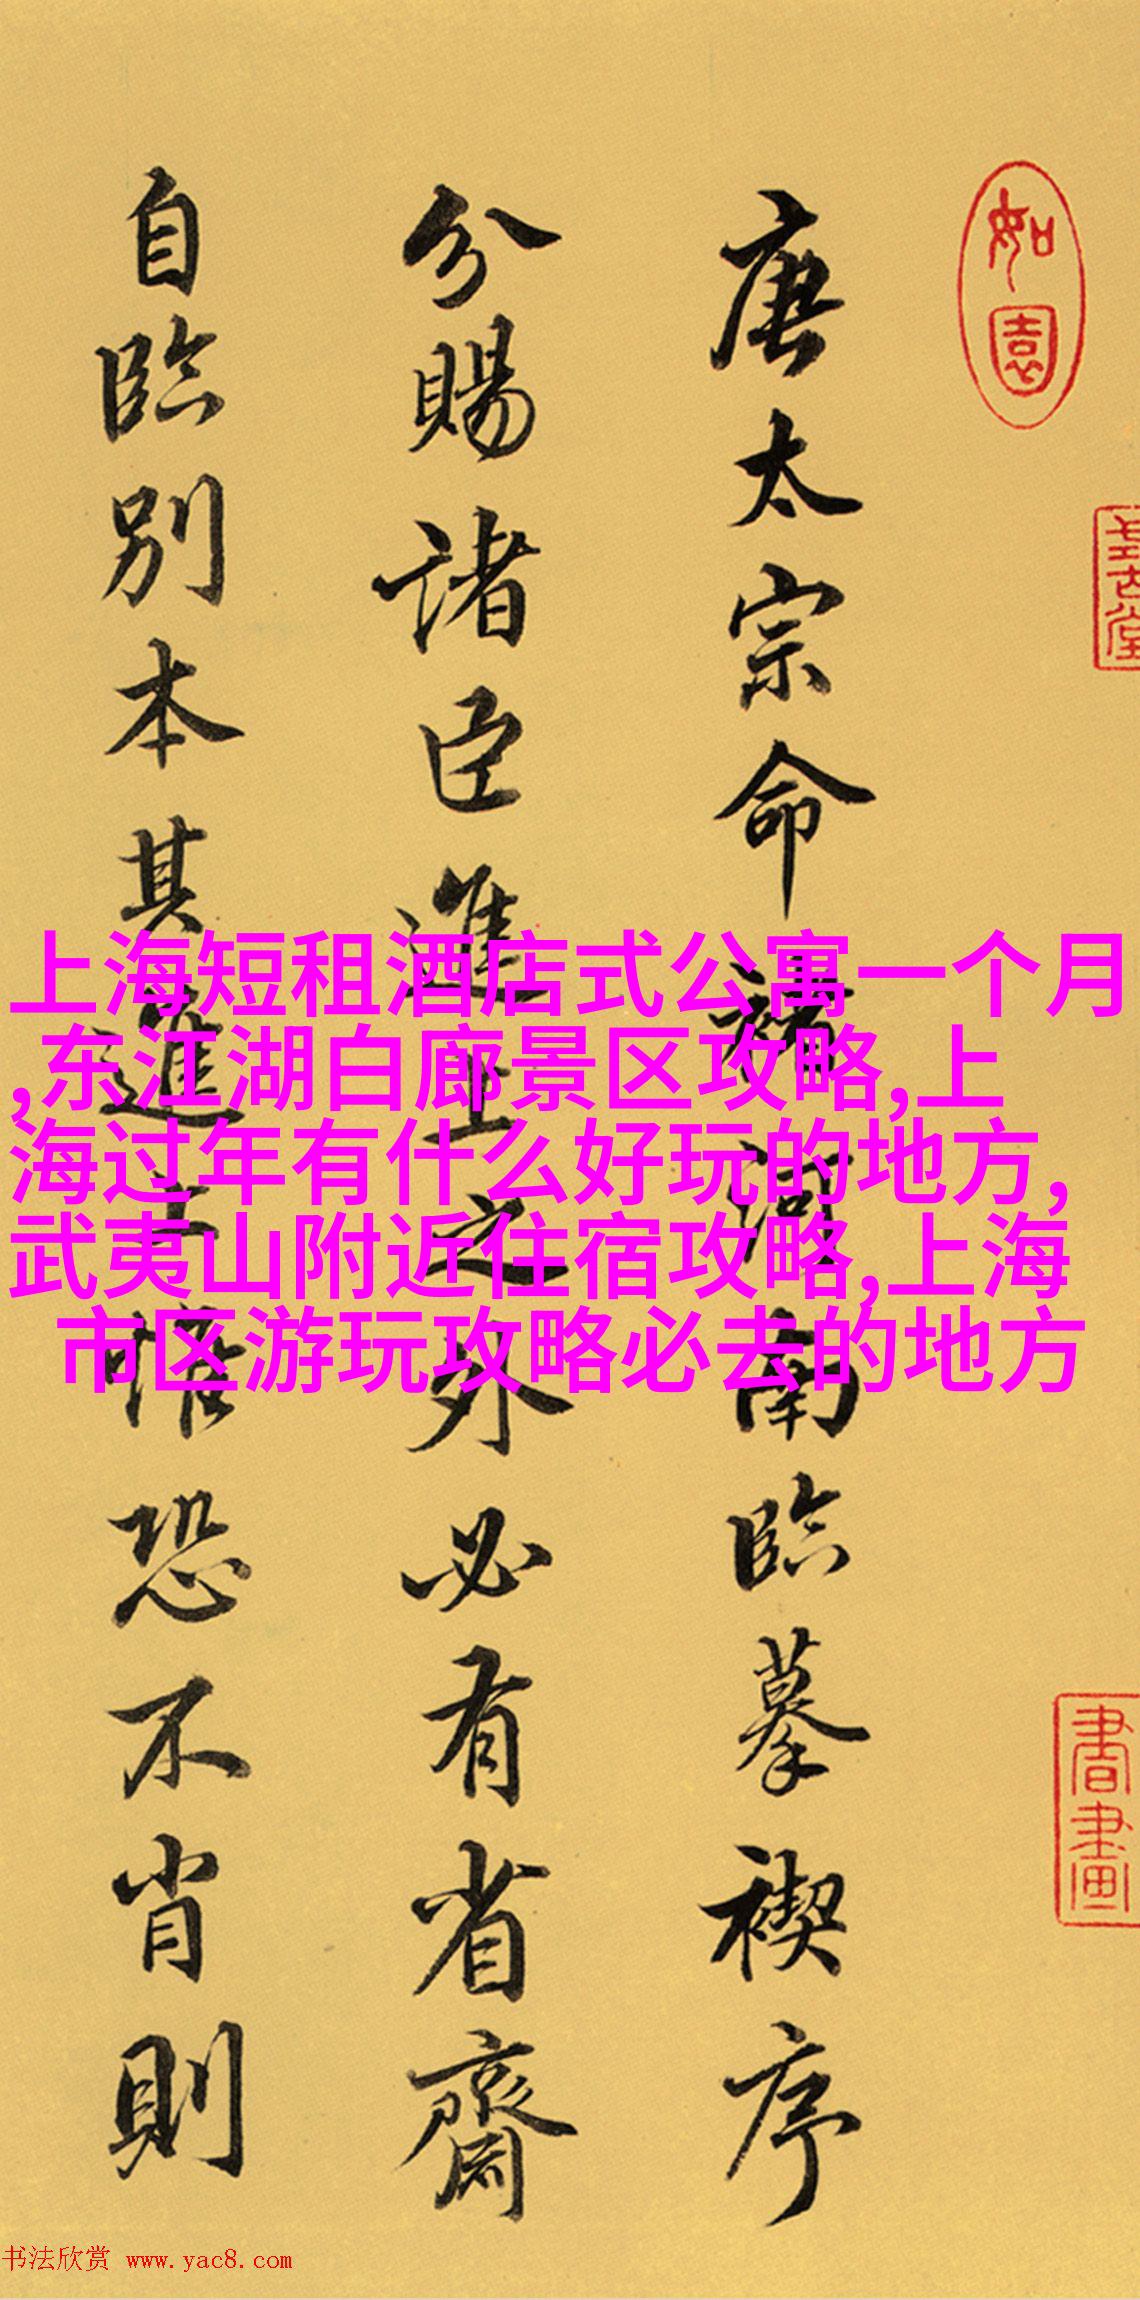 唐太宗命褚河南臨摹禊序
分賜諸臣進上之外必有省齋
自臨別本其進上惟恐不肖則
如園
書畫
上海短租酒店式公寓一个月
,东江湖白廊景区攻略,上
海过年有什么好玩的地方,
武夷山附近住宿攻略,上海
市区游玩攻略必去的地方
书法欣赏 www.yac8.com